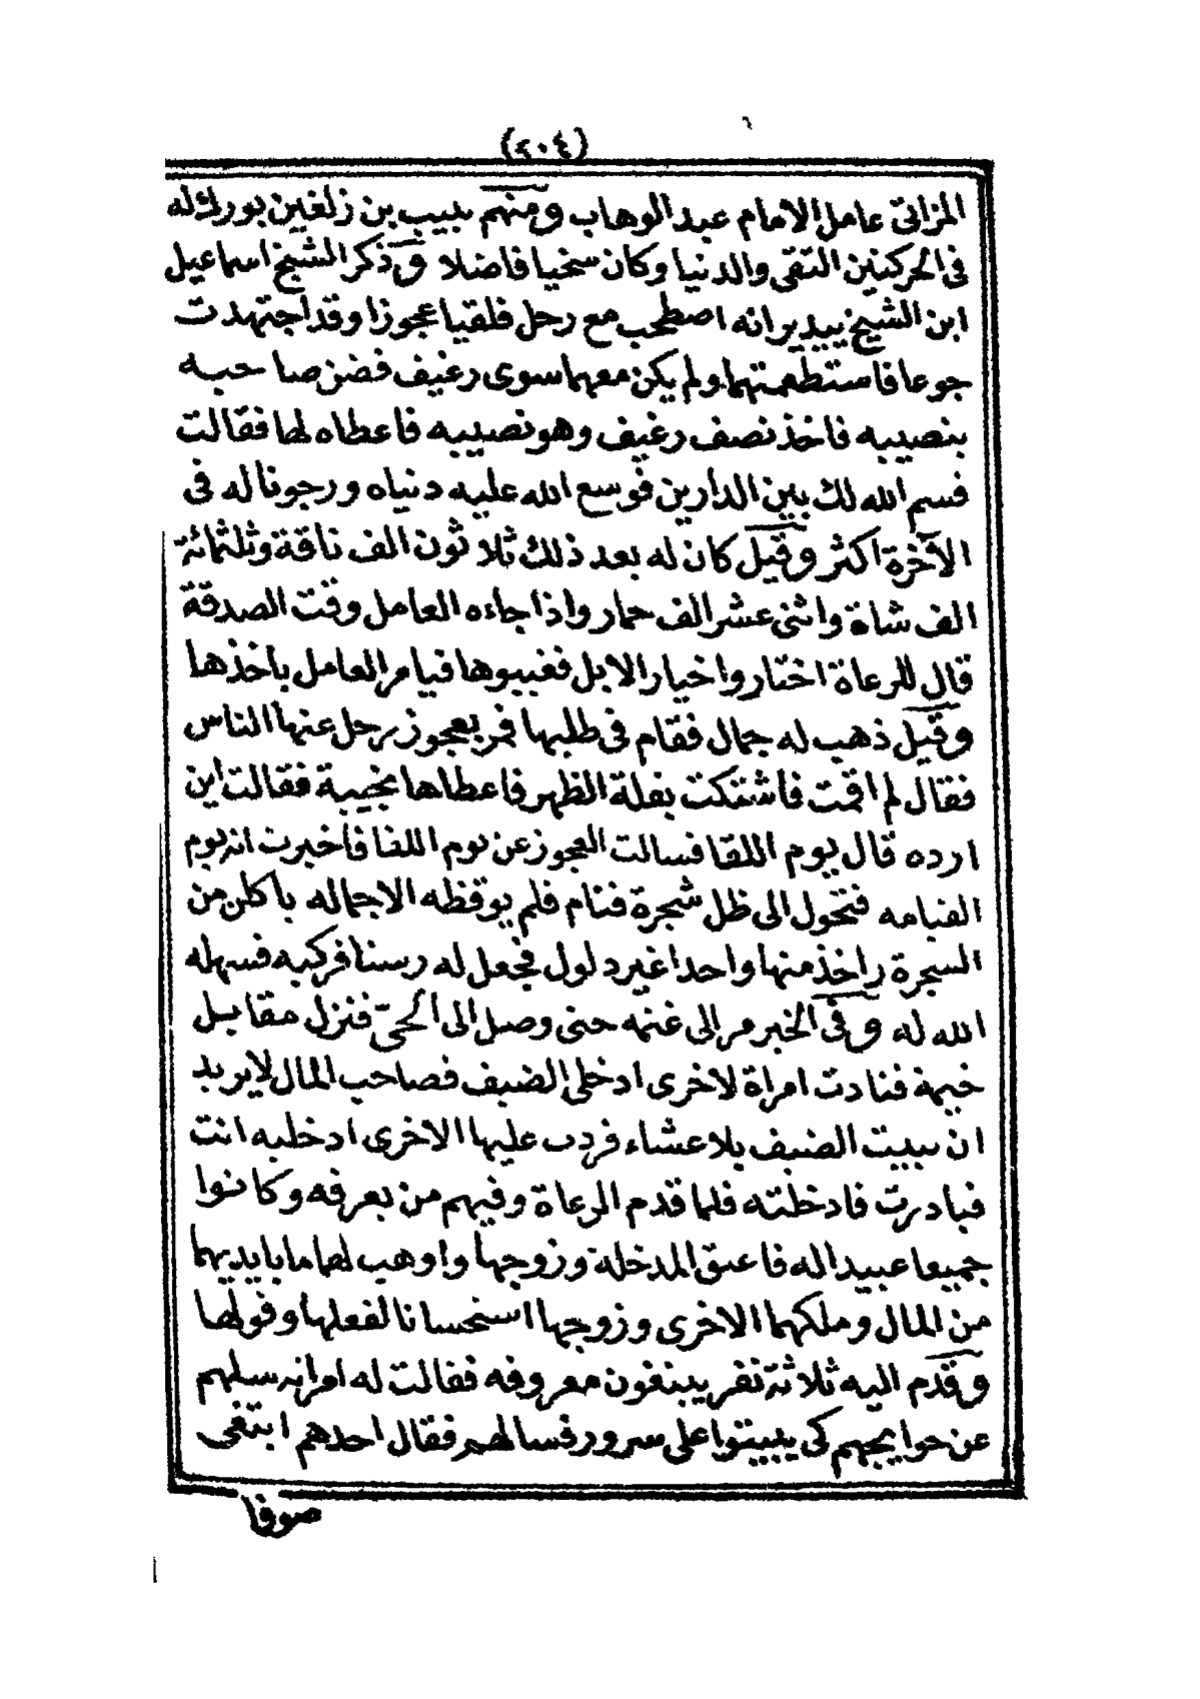 (٢٠٤)
المزاتى عامل الامام عبد الوهاب ومنهم يبيب بن زلغين بورك له
فى الحركتين التقى والدنيا وكان سخيا فاضلا وذكر الشيخ اسماعيل
ابن الشيخ ييدير انه اصطحب مع رجل فلقيا عجوزا وقد اجتهدت
جوعا فاستطعمتهما ولم يكن معهما سوى رغيف فضن صاحبه
بنصيبه فاخذ نصف رغيف وهو نصيبه فاعطاه لها فقالت
قسم الله لك بين الدارين فوسع الله عليه دنياه ورجونا له فى
الآخرة اكثر وقيل كان له بعد ذلك ثلاثون الف ناقة وثلثمائة
الف شاة واثنى عشر الف حمار واذا جاءه العامل وقت الصدقة
قال للرعاة اختاروا خيار الابل فغيبوها فيامر العامل باخذها
وقيل ذهب له جمال فقام فى طلبها فمر بعجوز رحل عنها الناس
فقال لم اقمت فاشتكت بقلة الظهر فاعطاها نجيبة فقالت اين
ارده قال يوم اللقا فسالت العجوز عن يوم اللقا فاخبرت انه يوم
القيامه فتحول الى ظل شجرة فنام فلم يوقظه الا جماله ياكلن من
السجرة واخذ منها واحدا غير دلول فجعل له رسنا فركبه فسهله
الله له وفى الخبر مر الى غنمه حتى وصل الى الحىّ فنزل مقابل
خيمة فنادت امراة لاخرى ادخلى الضيف فصاحب المال لا يريد
ان يبيت الضيف بلا عشاء فردت عليها الاخرى ادخليه انت
فبادرت فادخلته فلما قدم الرعاة وفيهم من يعرفه وكانوا
جميعا عبيدا له فاعتق المدخلة وزوجها واوهب لهما ما بايديهما
من المال وملكهما الاخرى وزوجها استحسانا لفعلها وقولها
وقدم اليه ثلاثة نفر يبتغون معروفه فقالت له امراته سلهم
عن حوايجهم كى يبيتوا على سرور فسالهم فقال احدهم ابتغى
صوفا